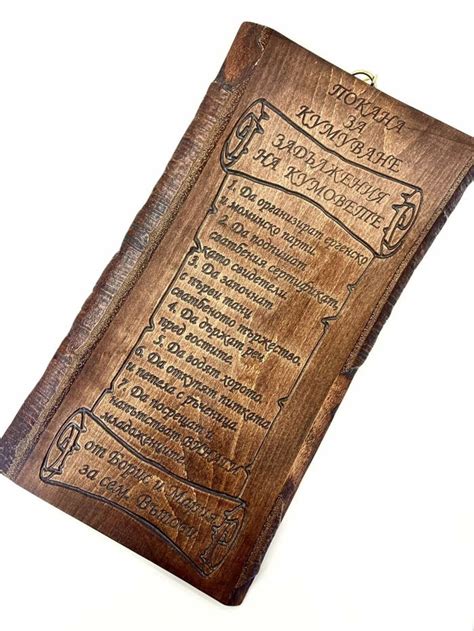 ПОКАНА
ЗА
КУМУВАНЕ
ЗАДЪЛЖЕНИЯ
НА КУМОВЕТЕ
1. Да организират ергенско
и моминско парти.
2. Да подпишат
сватбения сертификат,
като свидетели.
3. Да започнат
с първи танц
сватбеното тържество.
4. Да държат реч
пред гостите.
5. Да водят хорото.
6. Да откупят питката
и петела с ръченица.
7. Да посрещат и
напътстват
младоженците.
от Борис и Мария
за сем.